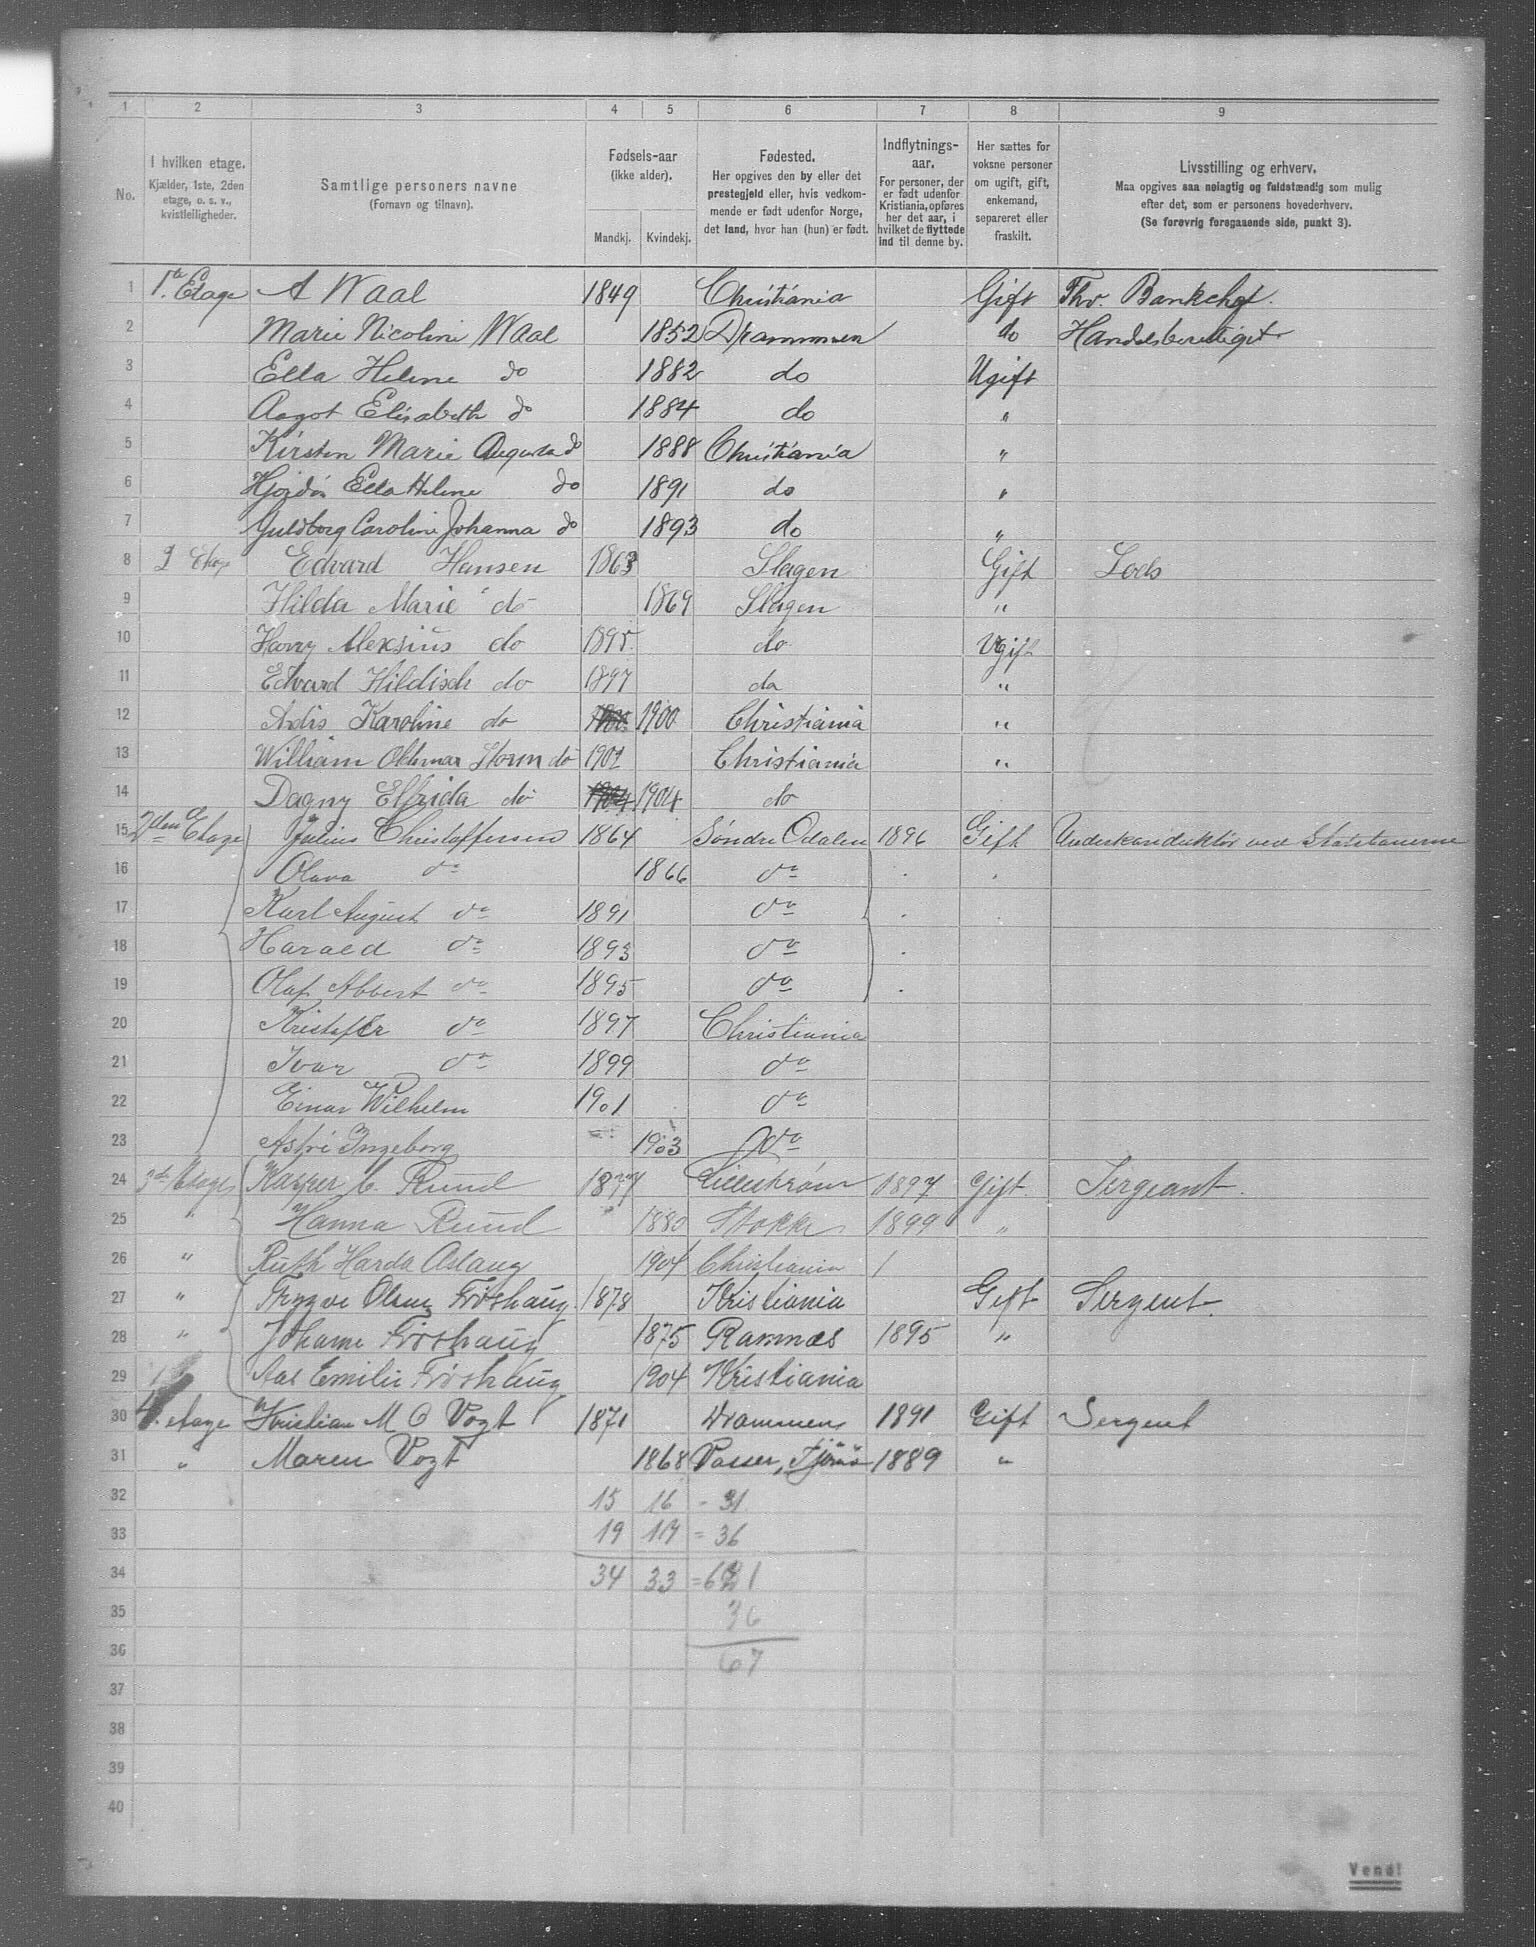 1 2 3 4 5 6 7 8 9
No.
I hvilken etage.
Kjælder, 1ste, 2den
etage, o. s. v.,
kvistleiligheder.
Samtlige personers navne
(Fornavn og tilnavn).
Fødsels-aar
(ikke alder).
Mandkj. Kvindekj.
Fødested.
Her opgives den by eller det
prestegjeld eller, hvis vedkom-
mende er født udenfor Norge,
det land, hvor han (hun) er født.
Indflytnings-
aar.
For personer, der
er født udenfor
Kristiania, opføres
her det aar, i
hvilket de flyttede
ind til denne by.
Her sættes for
voksne personer
om ugift, gift,
enkemand,
separeret eller
fraskilt.
Livsstilling og erhverv.
Maa opgives saa nøiagtig og fuldstændig som mulig
efter det, som er personens hovederhverv.
(Se forøvrig foregaaende side, punkt 3).
1 1te Etage A Waal 1849 Christiania Gift Fhv. Bankchef.
2 Marie Nicoline Waal 1852 Drammen do Handelsberettiget
3 Ella Helene do 1882 do Ugift
4 Aagot Elisabeth do 1884 do "
5 Kirsten Marie Augusta do 1888 Christiania "
6 Hjördis Ella Helene do 1891 do "
7 Guldborg Caroline Johanna do 1893 do "
8 2 Etage Edvard Hansen 1863 Slagen Gift Lods
9 Hilda Marie do 1869 Slagen "
10 Harry Aleksius do 1895. do Ugift
11 Edvard Hildisch do 1897 do "
12 Ardis Karoline do 1900 Christiania "
13 William Othmar Storm do 1902 Christiania "
14 Dagny Elfrida do 1904 1904 do
15 2den Etage Julius Christoffersen 1864 Søndre Odalen 1896 Gift Underkonduktör ved Statsbanerne
16 Olava do 1866 do
17 Karl August do 1891 do
18 Harald do 1893 do
19 Olaf Albert do 1895 do
20 Kristofer do 1897 Christiania
21 Ivar do 1899 do
22 Einar Wilhelm 1901 do
23 Astri Ingeborg 1903 do
24 3die Etage Kasper C. Ruud 1877 Lillestrøm 1897 Gift. Sergeant.
25 " Hanna Ruud 1880 Stokke 1899 "
26 " Ruth Harda Aslaug 1904 Christiania
27 " Trygve Olsen Frøshaug. 1878 Kristiania Gift Sergent.
28 " Johanne Frøshaug 1875 Ramnæs 1895 "
29 Aas Emilie Frøshaug 1904 Kristiania
30 4. etage Kristian M C Vogt 1871 Drammen 1891 Gift Sergent
31 " Maren Vogt 1868 Vasser, Tjömö 1889 "
32 15 16 - 31
33 19 17 = 36
34 34 33 =
35 36
36 67
37
38
39
40
Vend!